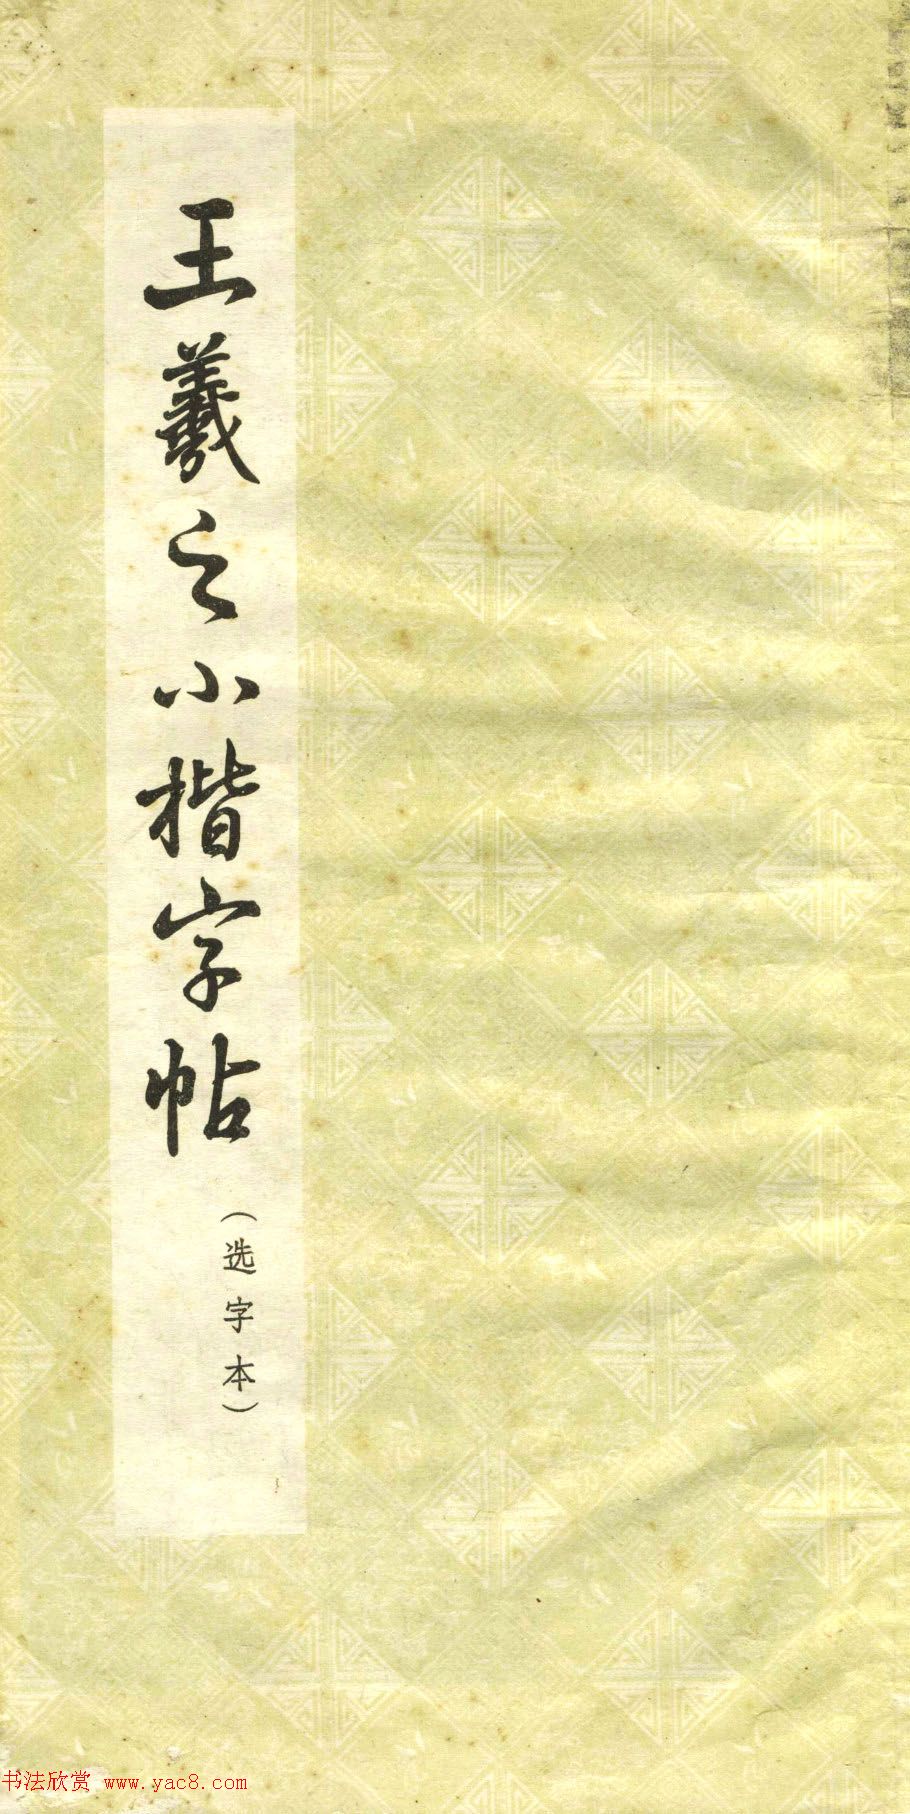 王羲之小楷字帖
（选字本）
书法欣赏 www.yac8.com